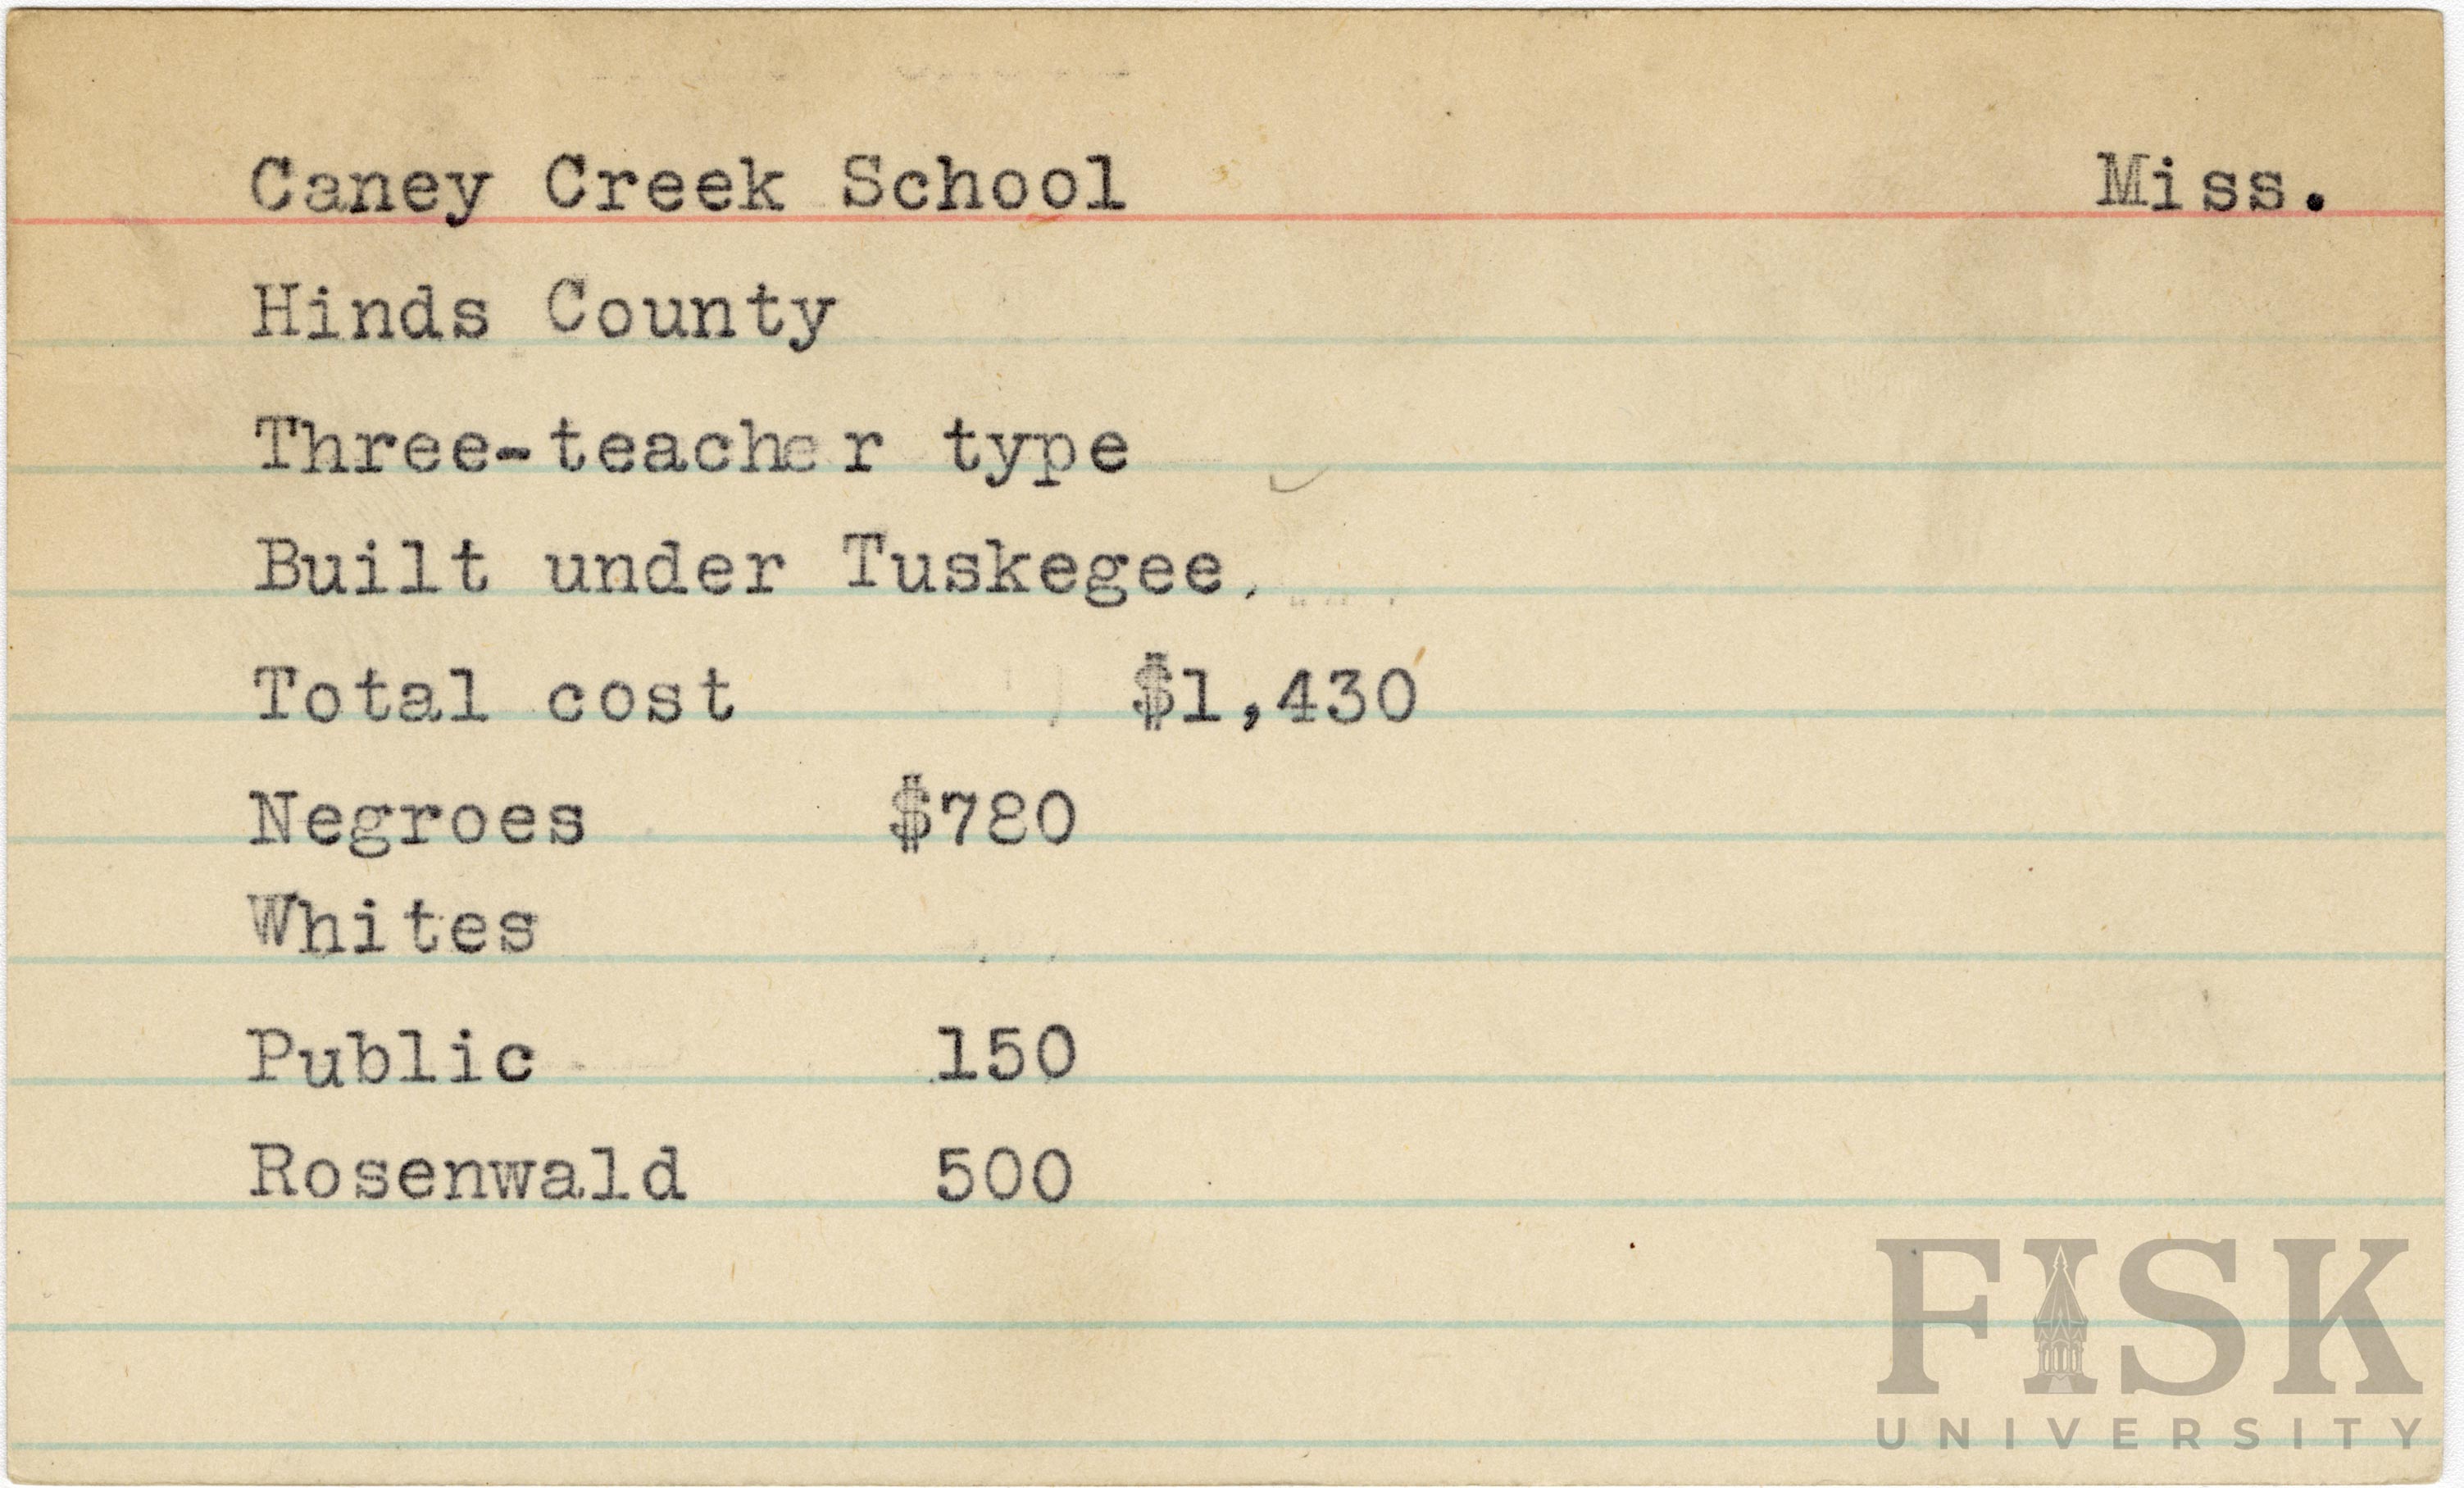 Caney Creek School Miss.
Hinds County
Three-teacher type
Built under Tuskegee.
Total cost $1,430
Negroes $780
Whites
Public 150
Rosenwald 500
FISK
UNIVERSITY